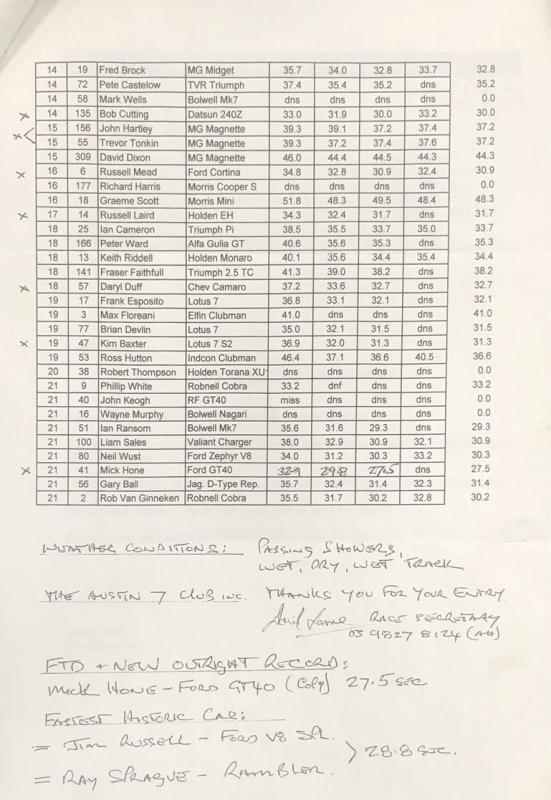 14 19 Fred Brock MG Midget 35.7 34.0 32.8 33.7 32.8
14 72 Pete Castelow TVR Triumph 37.4 35.4 35.2 dns 35.2
14 58 Mark Wells Bolwell Mk7 dns dns dns dns 0.0
x 14 135 Bob Cutting Datsun 240Z 33.0 31.9 30.0 33.2 30.0
x 15 156 John Hartley MG Magnette 39.3 39.1 37.2 37.4 37.2
15 55 Trevor Tonkin MG Magnette 39.3 37.2 37.4 37.6 37.2
15 309 David Dixon MG Magnette 46.0 44.4 44.5 44.3 44.3
x 16 6 Russell Mead Ford Cortina 34.8 32.8 30.9 32.4 30.9
16 177 Richard Harris Morris Cooper S dns dns dns dns 0.0
16 18 Graeme Scott Morris Mini 51.8 48.3 49.5 48.4 48.3
x 17 14 Russell Laird Holden EH 34.3 32.4 31.7 dns 31.7
18 25 Ian Cameron Triumph Pi 38.5 35.5 33.7 35.0 33.7
18 166 Peter Ward Alfa Gulia GT 40.6 35.6 35.3 dns 35.3
18 13 Keith Riddell Holden Monaro 40.1 35.6 34.4 35.4 34.4
18 141 Fraser Faithfull Triumph 2.5 TC 41.3 39.0 38.2 dns 38.2
x 18 57 Daryl Duff Chev Camaro 37.2 33.6 32.7 dns 32.7
19 17 Frank Esposito Lotus 7 36.8 33.1 32.1 dns 32.1
19 3 Max Floreani Elfin Clubman 41.0 dns dns dns 41.0
19 77 Brian Devlin Lotus 7 35.0 32.1 31.5 dns 31.5
x 19 47 Kim Baxter Lotus 7 S2 36.9 32.0 31.3 dns 31.3
19 53 Ross Hutton Indcon Clubman 46.4 37.1 36.6 40.5 36.6
20 38 Robert Thompson Holden Torana XU dns dns dns dns 0.0
21 9 Phillip White Robnell Cobra 33.2 dnf dns dns 33.2
21 40 John Keogh RF GT40 miss dns dns dns 0.0
21 16 Wayne Murphy Bolwell Nagari dns dns dns dns 0.0
21 51 Ian Ransom Bolwell Mk7 35.6 31.6 29.3 dns 29.3
21 100 Liam Sales Valiant Charger 38.0 32.9 30.9 32.1 30.9
21 80 Neil Wust Ford Zephyr V8 34.0 31.2 30.3 33.2 30.3
x 21 41 Mick Hone Ford GT40 32.9 29.8 27.5 dns 27.5
21 56 Gary Ball Jag. D-Type Rep. 35.7 32.4 31.4 32.3 31.4
21 2 Rob Van Ginneken Robnell Cobra 35.5 31.7 30.2 32.8 30.2
WEATHER CONDITIONS: PASSING SHOWERS,
WET, DRY, WET TRACK
THE AUSTIN 7 CLUB INC. THANKS YOU FOR YOUR ENTRY.
RACE SECRETARY
03 9827 8124 (AH)
FTD + NEW OUTRIGHT RECORD:
MICK HONE - FORD GT40 (COPY) 27.5 SEC
FASTEST HISTORIC CAR:
= JIM RUSSELL - FORD V8 SPL.
28.8 SEC.
= RAY SPRAGUE - RAMBLER.